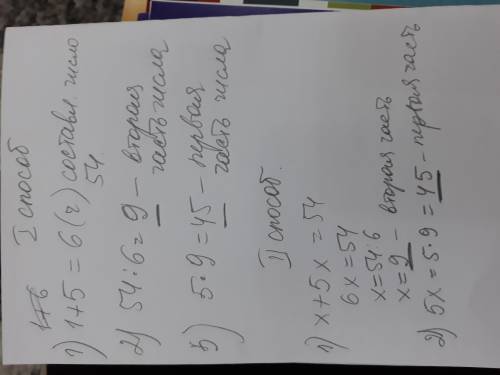 I способ
1) 1+5 = 6 (г) составл. число
54
2) 54:6 = 9 – вторая
часть числа
3) 5·9 = 45 – первая
часть числа
II способ.
1) x + 5x = 54
6x = 54
x = 54:6
x = 9 – вторая часть
2) 5x = 5·9 = 45 – первая часть